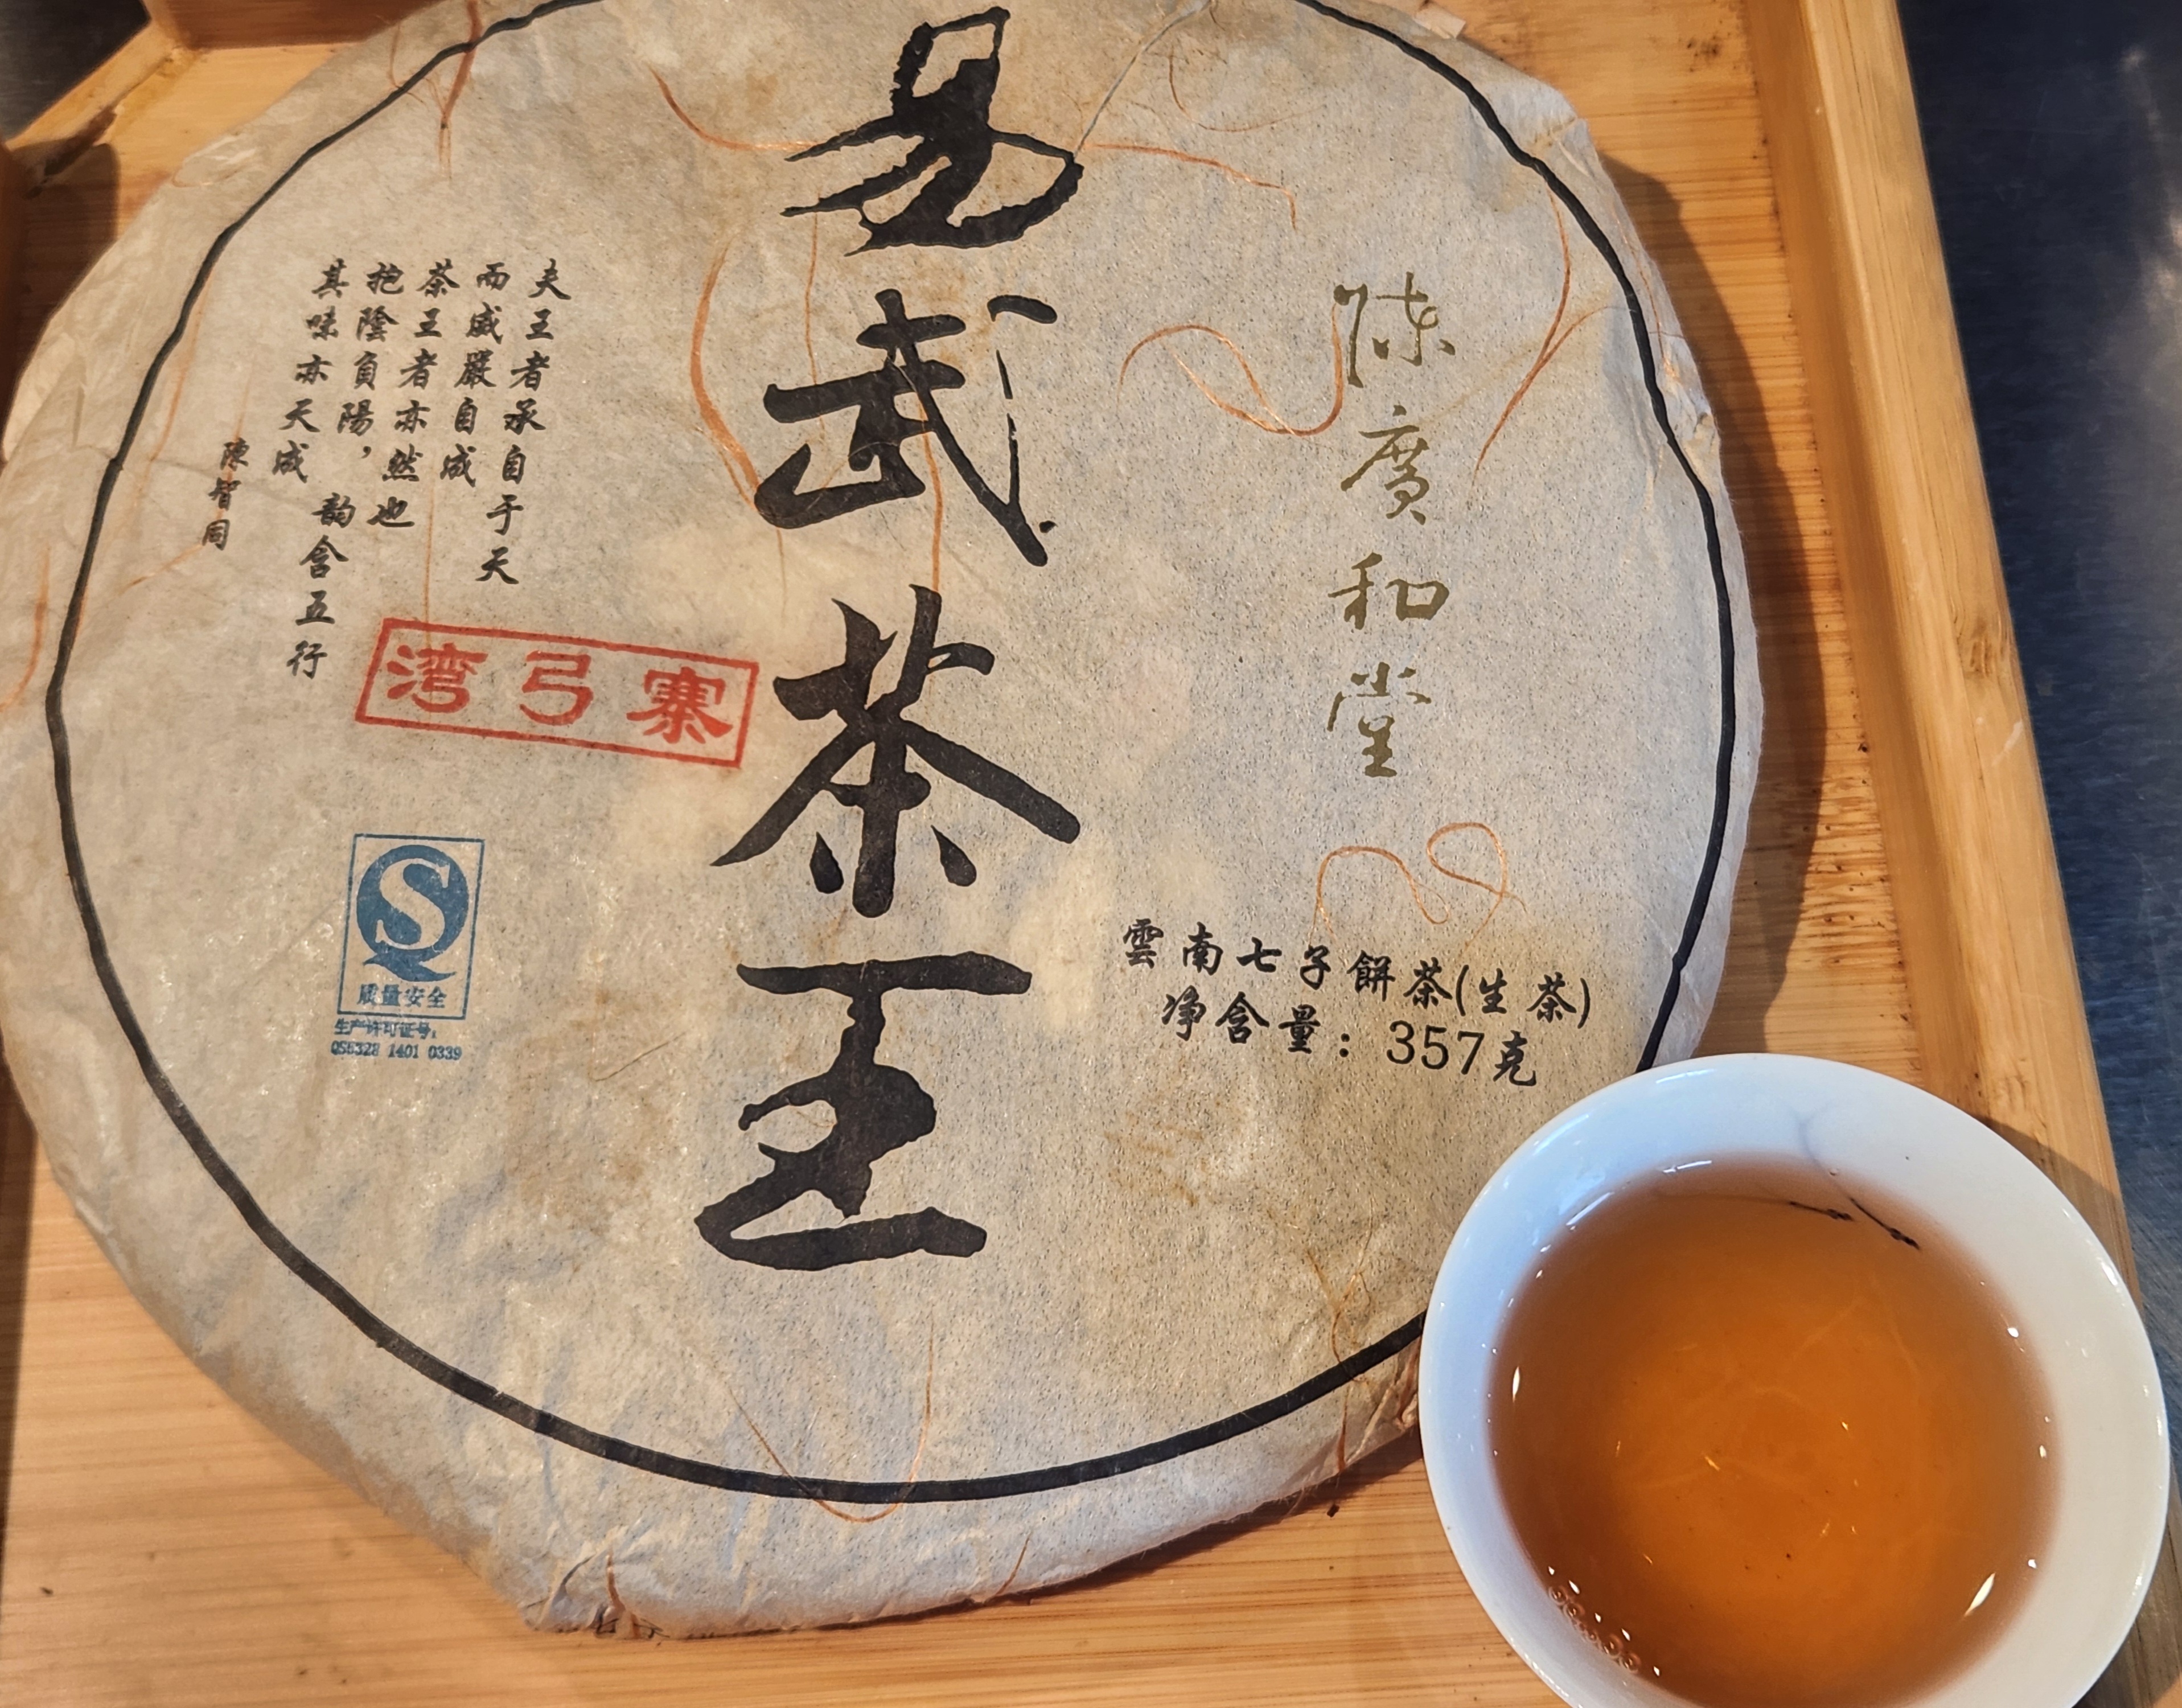 陳廣和堂
易武茶王
夫王者承自于天
而威嚴自成
茶王者亦然也
抱陰負陽，韵含五行
其味亦天成
陳智同
湾弓寨
质量安全
生产许可证号:
QS5328 1401 0339
雲南七子餅茶(生茶)
净含量：357克